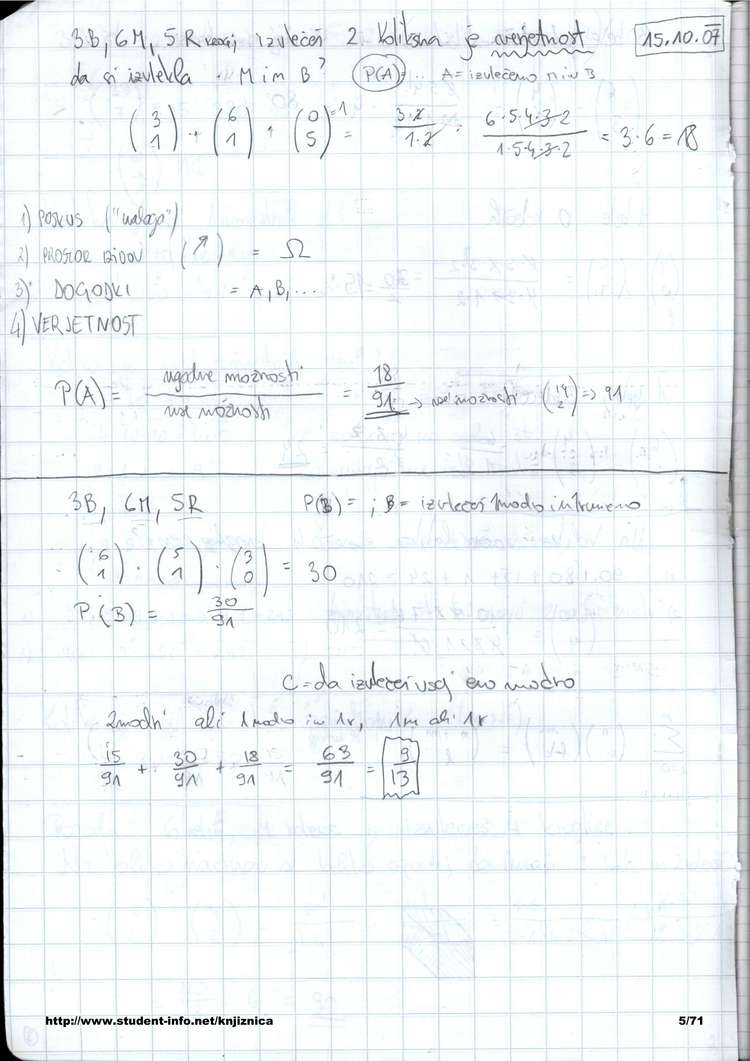 3B, 6M, 5R izvlečeš 2 Kolikšna je verjetnost 15.10.07
da si izvlekla M in B? P(A)= .. A = izvlečeno m in B
(3 1) · (6 1) · (0 5) =1 = 3·2/1·2 · 6·5·4·3·2/1·5·4·3·2 = 3·6 = 18
1) POSKUS ("naloga")
2) PROSTOR IZIDOV (↗) = Ω
3) DOGODKI = A, B, ...
4) VERJETNOST
P(A) = ugodne možnosti/vse možnosti = 18/91 → vse možnosti (14 2) => 91
3B, 6M, 5R P(B) = ; B = izvlečeš 1modro in 1rumeno
(6 1) · (5 1) · (3 0) = 30
P(B) = 30/91
C = da izvlečeš vsaj eno modro
2modri ali 1modro in 1r, 1m ali 1r
15/91 + 30/91 + 18/91 = 63/91 = 9/13
http://www.student-info.net/knjiznica 5/71